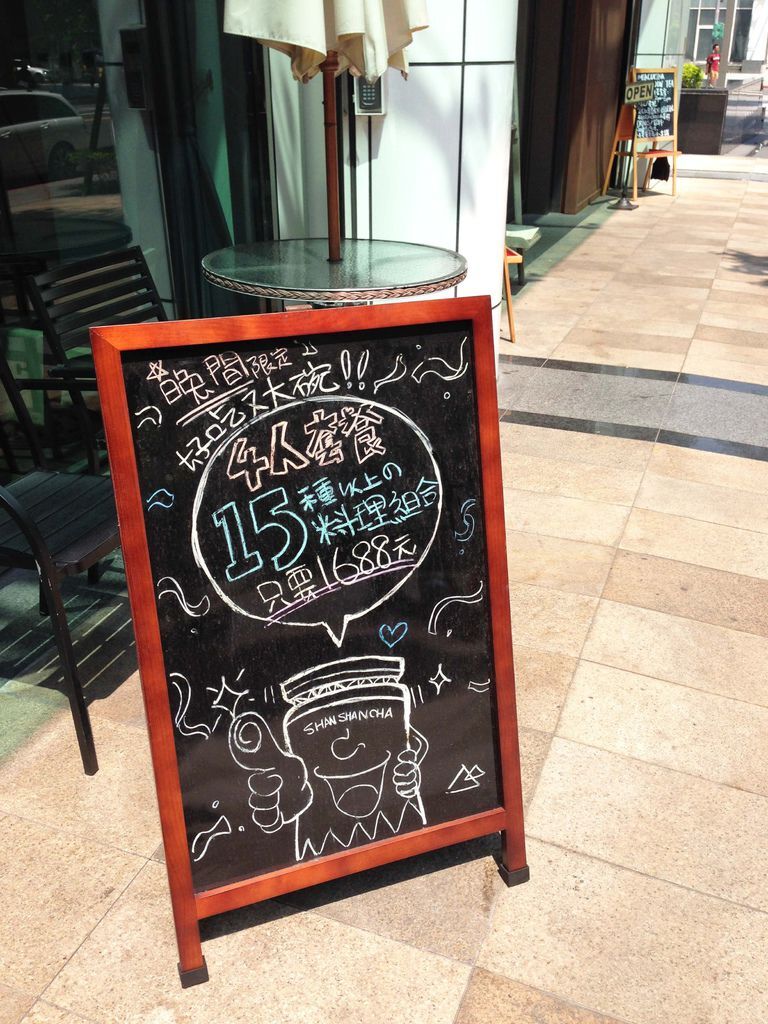 晚間限定
好吃又大碗!!
4人套餐
15種以上の
料理組合
只要1688元
SHANSHANCHA
OPEN